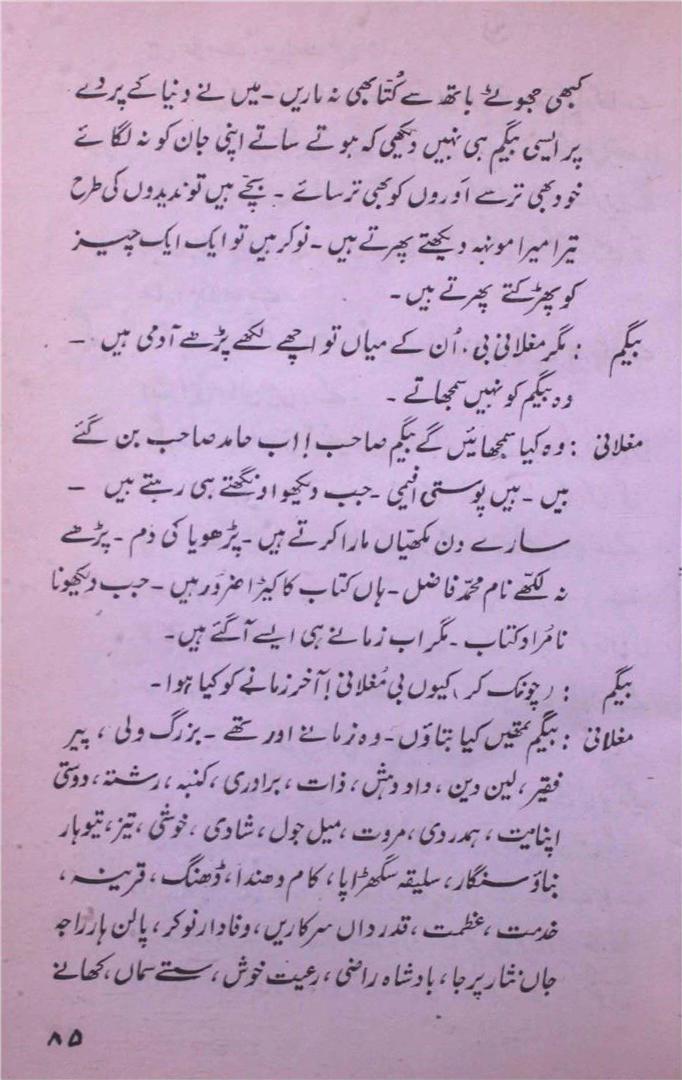 کبھی جھوٹے ہاتھ سے کُتّا بھی نہ ماریں ۔ میں نے دنیا کے پردے
پر ایسی بیگم ہی نہیں دیکھی کہ ہوتے ساتے اپنی جان کو نہ لگائے
خود بھی ترسے اَوروں کو بھی ترسائے ۔ بچّے ہیں تو ندیدوں کی طرح
تیرا میرا مونہہ دیکھتے پھرتے ہیں ۔ نوکر ہیں تو ایک ایک چیز
کو پھڑکتے پھرتے ہیں ۔
بیگم : مگر مغلانی بی، اُن کے میاں تو اچھے لکھے پڑھے آدمی ہیں ۔
وہ بیگم کو نہیں سمجھاتے ۔
مغلانی : وہ کیا سمجھائیں گے بیگم صاحب ! اب حامد صاحب بن گئے
ہیں ۔ ہیں پوستی افیمی ۔ جب دیکھو اونگھتے ہی رہتے ہیں ۔
سارے دن مکھّیاں مارا کرتے ہیں ۔ پڑھویا کی دُم ۔ پڑھے
نہ لکھّے نام محمّد فاضل ۔ ہاں کتاب کا کیڑا ضرور ہیں ۔ جب دیکھو نا
نامُراد کتاب ۔ مگر اب زمانے ہی ایسے آگئے ہیں ۔
بیگم : (چونک کر) کیوں بی مُغلانی ! آخر زمانے کو کیا ہوا ۔
مغلانی : بیگم تمھیں کیا بتاؤں ۔ وہ زمانے اور تھے ۔ بزرگ ولی ، پیر
فقیر ، لین دین ، داد دہش ، ذات ، برادری ، کنبہ ، رشتہ ، دوستی
اپنایت ، ہمدردی ، مروت ، میل جول ، شادی ، خوشی ، تیز ، تیوہار
بناؤ سنگار ، سلیقہ سگھڑاپا ، کام دھندا ، ڈھنگ ، قرینہ ،
خدمت ، عظمت ، قدرداں سرکاریں ، وفادار نوکر ، پالن ہار راجہ
جاں نثار پرجا ، بادشاہ راضی ، رعیت خوش ، سستے سماں ، کھانے
۸۵